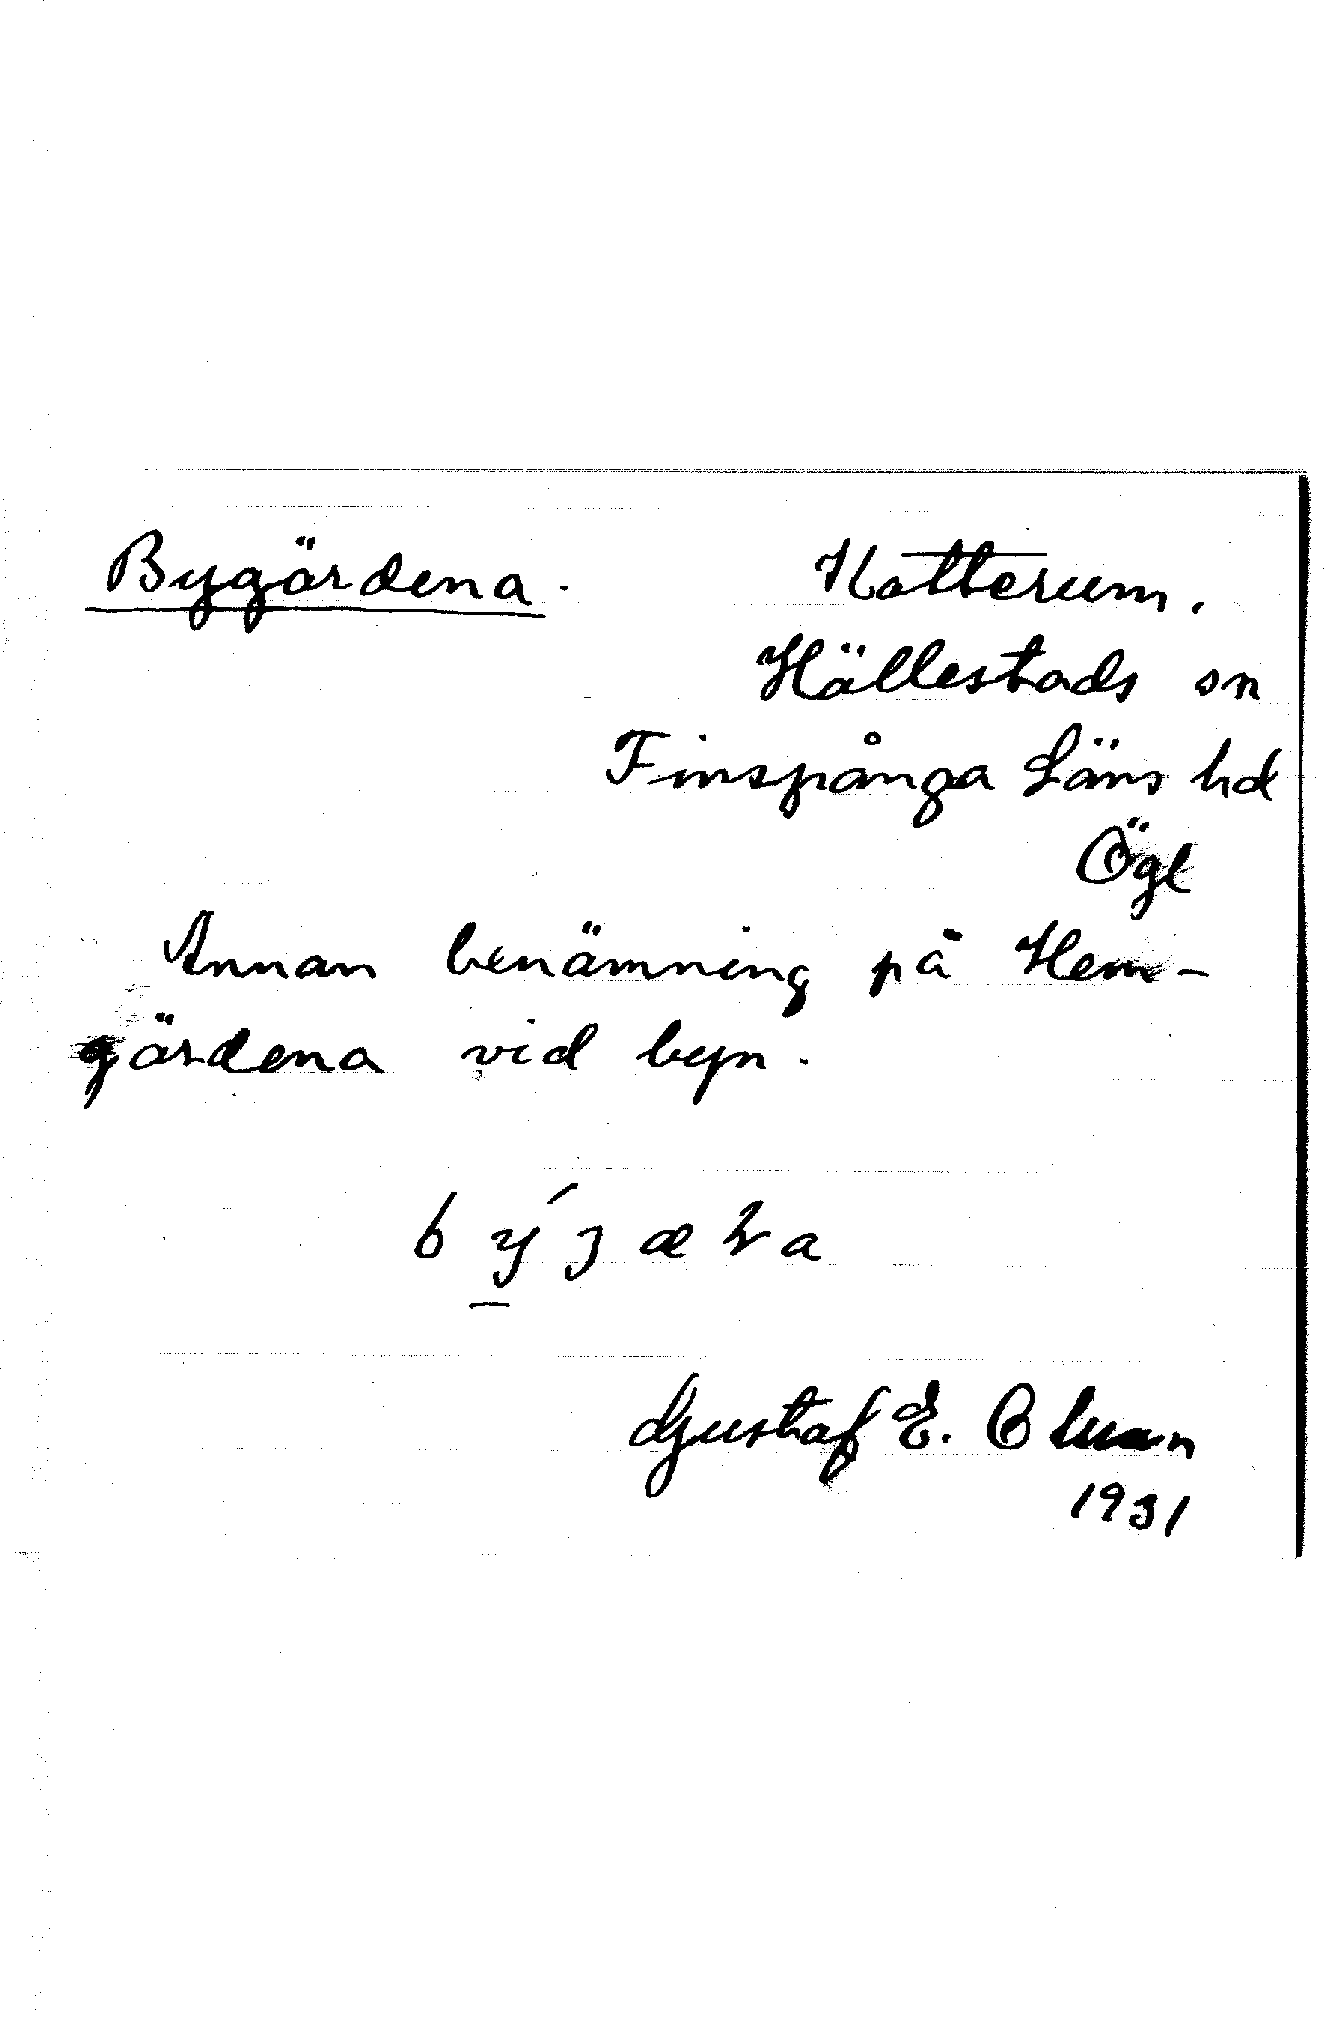 Bygärdena. Hatterum.
Hällestads sn
Finspånga Läns hd
Ögl
Annan benämning på Hem-
gärdena vid byn.
Gustaf E.
1931